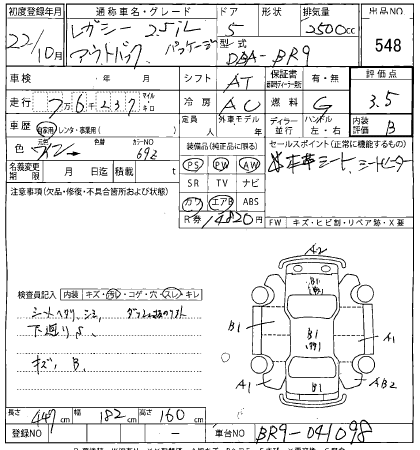 初度登録年月 通称車名・グレード ドア 形状 排気量 出品NO
22/10月 レガシー 2.5i L パッケージ 5 2500cc 548
アウトバック 型式 DBA-BR9
車検 年 月 シフト AT 保証書 有・無 評価点
走行 7万6千237 マイル キロ 冷房 AC 燃料 G 3.5
車歴 自家用 レンタ・事業用( ) 定員 人 外車モデル 年 ディーラー 並行 ハンドル 左・右 内装 B
色 元色 色替 カラーNO 692 装備品(純正品に限る) セールスポイント(正常に機能するもの)
PS PW AW 本革シート、シートヒーター
名義変更期限 月 日迄 積載 t SR TV ナビ
注意事項(欠品・修復・不具合箇所および状態) カワ エアB ABS
R券 14820円 FW キズ・ヒビ割・リペア跡・X要
A2
B1
検査員記入 内装 キズ・汚レ・コゲ・穴・スレ・キレ
シートヘタリ、シミ、
下廻りS、
キズ、B、
B1
B1
A1
A1
B1
AB2
長さ 447cm 幅 182cm 高さ 160cm
登録NO 車台NO BR9-041098